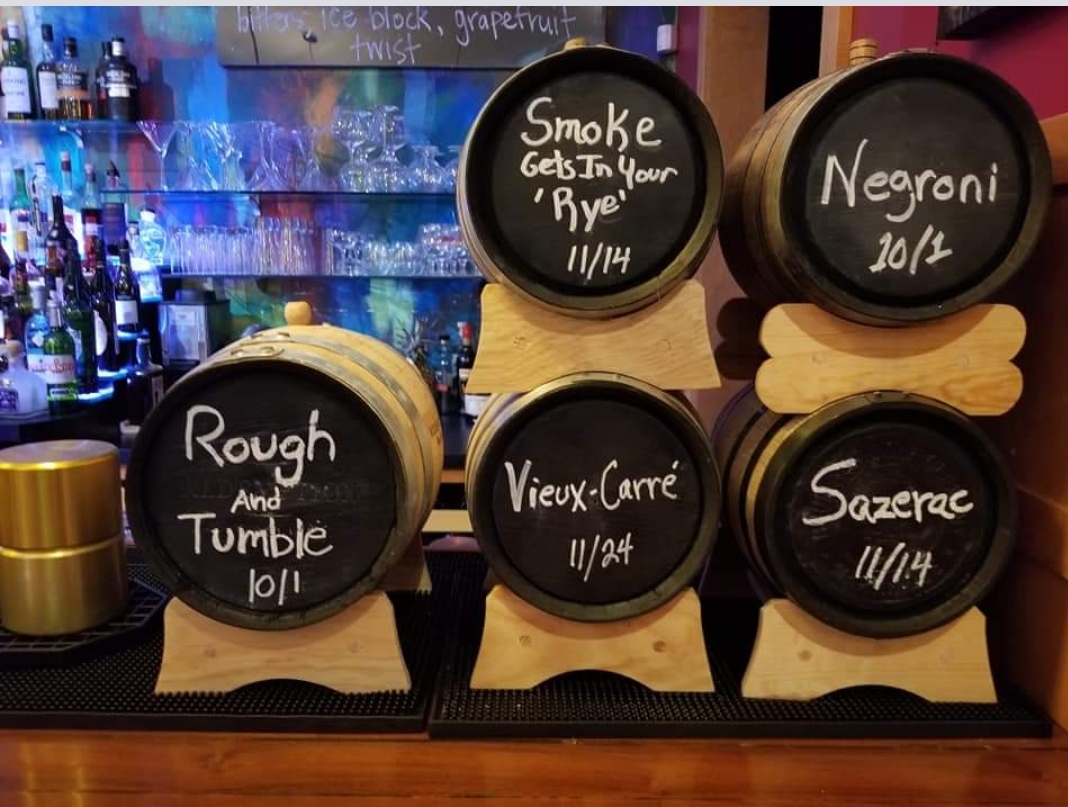 bitters, ice block, grapefruit
twist
Smoke
Gets In Your
'Rye'
11/14
Negroni
10/1
Rough
And
Tumble
10/1
Vieux-Carré
11/24
Sazerac
11/14